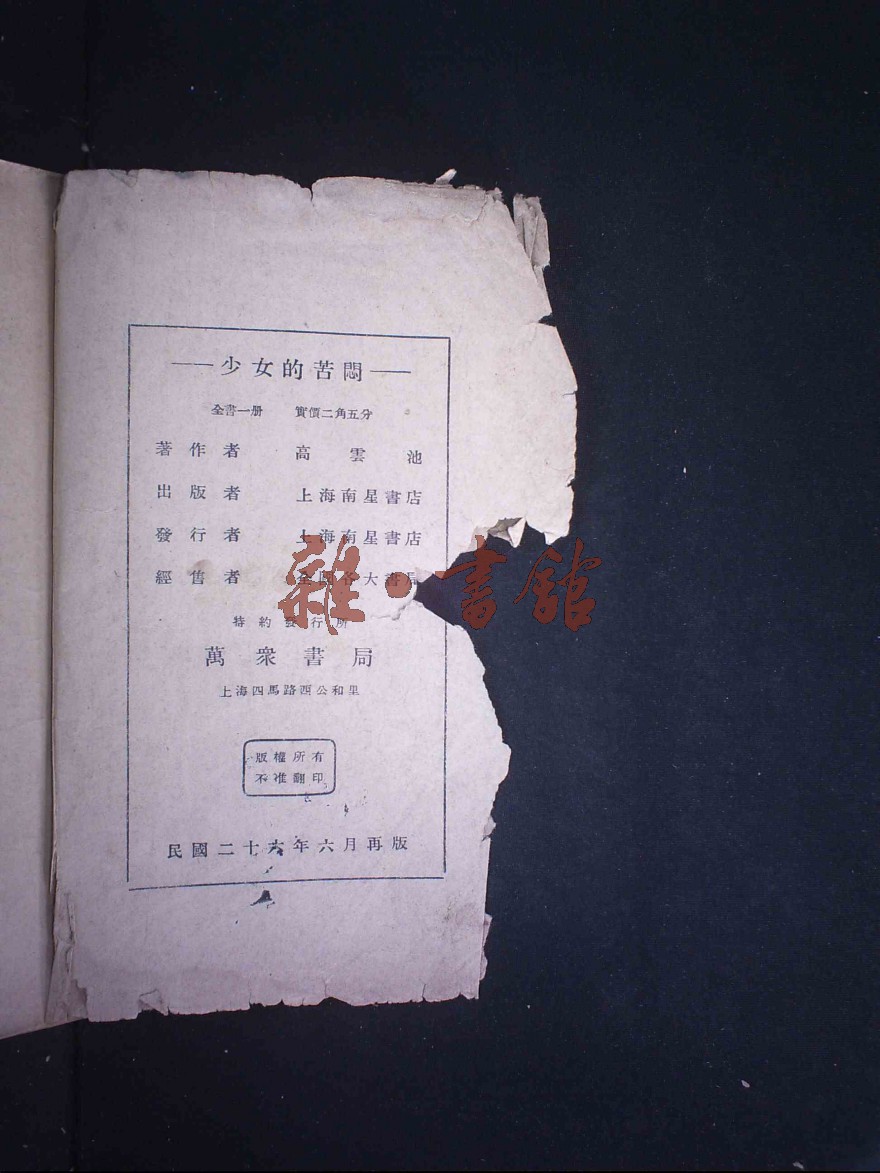 ——少女的苦悶——
全書一册 實價二角五分
著作者 高雲池
出版者 上海南星書店
發行者 上海南星書店
經售者 全國各大書局
特約發行所
萬衆書局
上海四馬路西公和里
版權所有
不准翻印
民國二十六年六月再版
雜·書館